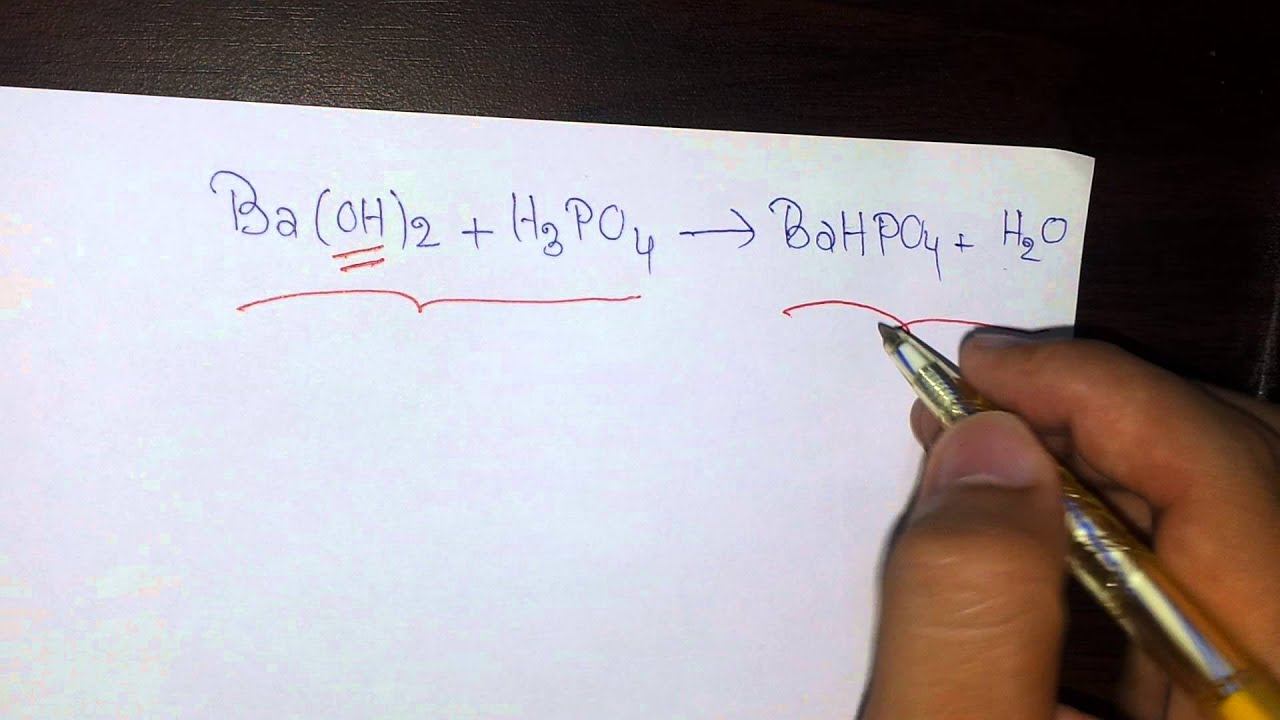 Ba(OH)2 + H3PO4 → BaHPO4 + H2O